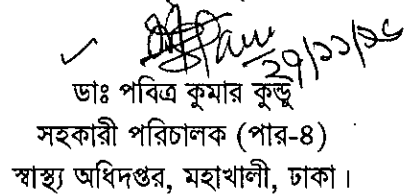 ডাঃ পবিত্র কুমার কুন্ডু
সহকারী পরিচালক (পার-৪)
স্বাস্থ্য অধিদপ্তর, মহাখালী, ঢাকা।